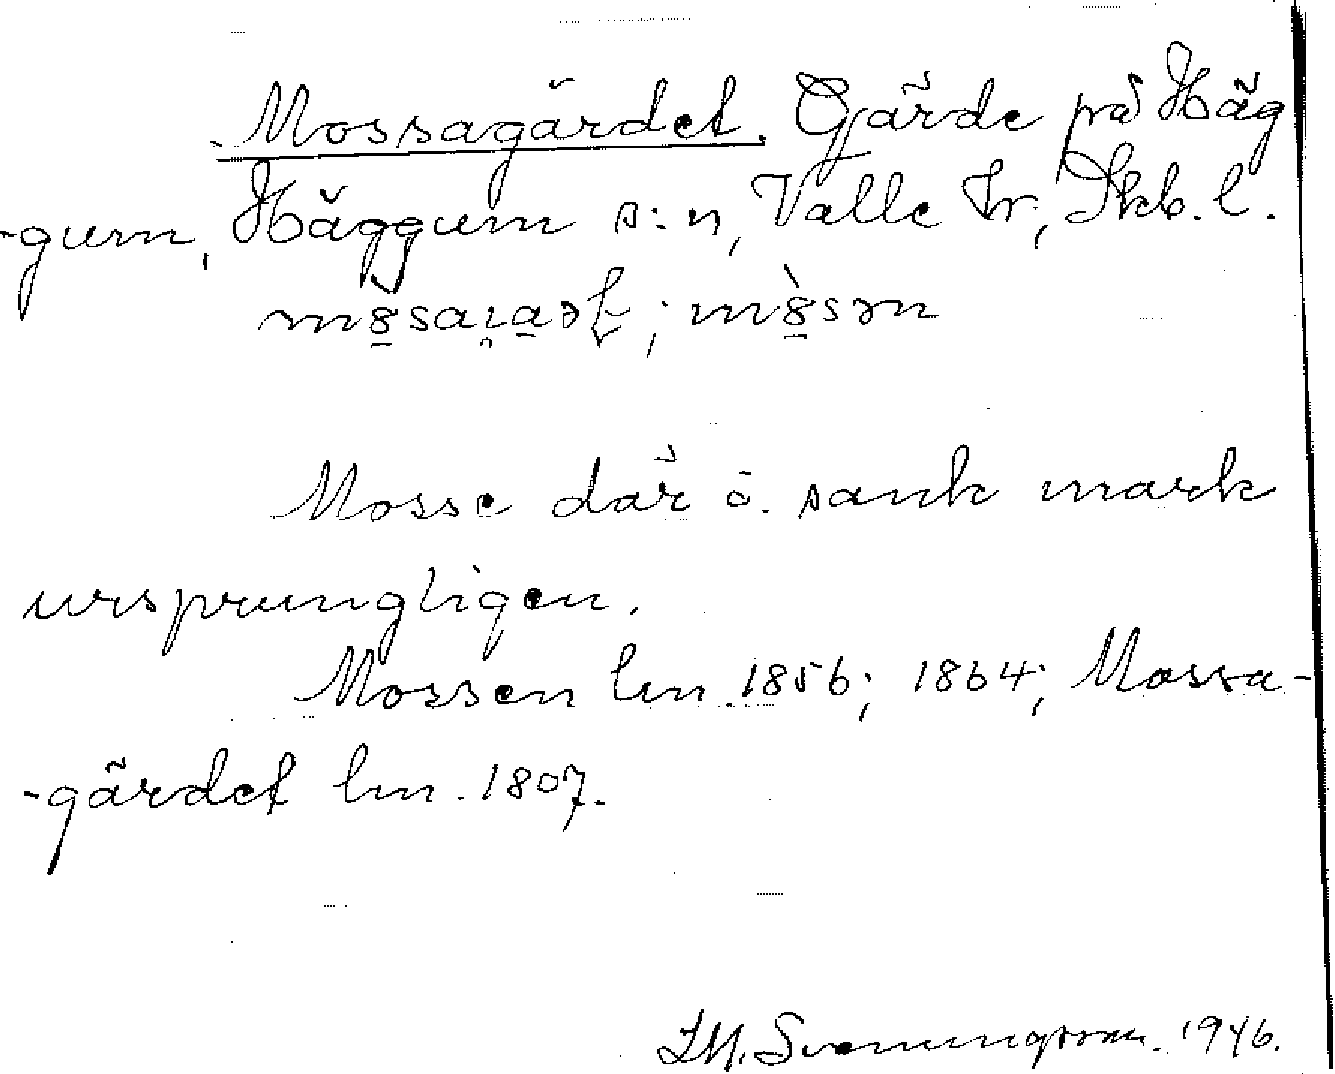 Mossagärdet. Gärde på Häg
-gum, Häggum s:n, Valle hr, Skb. l.
; m
Mosse där o. sank mark
ursprungligen.
Mossen lm. 1856; 1864; Mossa-
-gärdet lm. 1807.
Svenungsson. 1946.